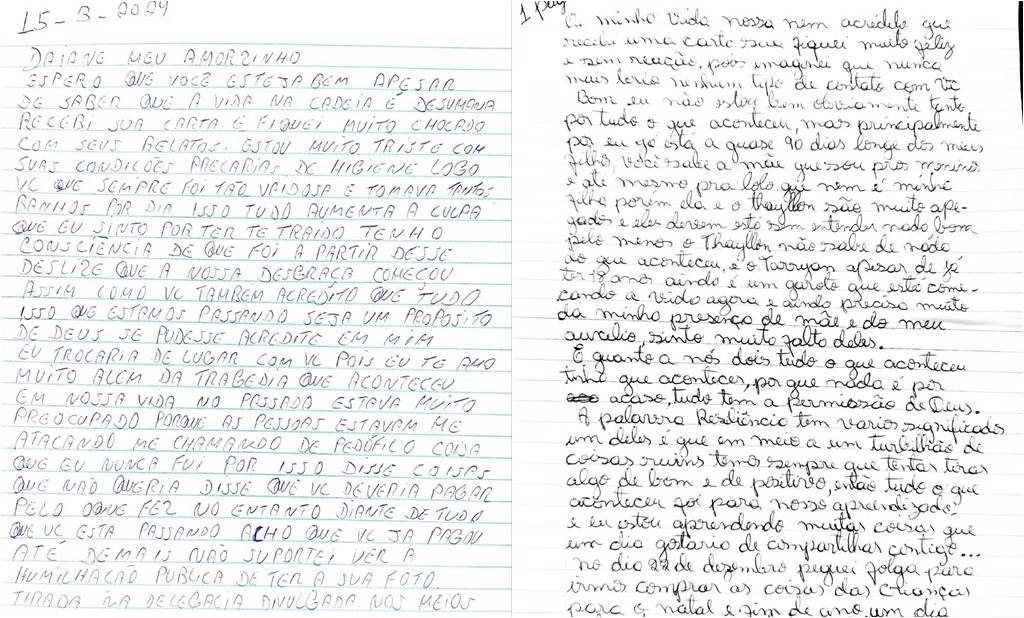 15-3-2024
DAIANE MEU AMORZINHO
ESPERO QUE VOCÊ ESTEJA BEM APESAR
DE SABER QUE A VIDA NA CADEIA E DESUMANA
RECEBI SUA CARTA E FIQUEI MUITO CHOCADO
COM SEUS RELATOS. ESTOU MUITO TRISTE COM
SUAS CONDICÕES PRECARIAS DE HIGIENE LOGO
VC QUE SEMPRE FOI TÃO VAIDOSA E TOMAVA TANTOS
BANHOS POR DIA ISSO TUDO AUMENTA A CULPA
QUE EU SINTO POR TER TE TRAIDO TENHO
CONSCIÊNCIA DE QUE FOI A PARTIR DESSE
DESLIZE QUE A NOSSA DESGRAÇA COMEÇOU
ASSIM COMO VC TAMBEM ACREDITO QUE TUDO
ISSO QUE ESTAMOS PASSANDO SEJA UM PROPOSITO
DE DEUS SE PUDESSE ACREDITE EM MIM
EU TROCARIA DE LUGAR COM VC POIS EU TE AMO
MUITO ALEM DA TRAGEDIA QUE ACONTECEU
EM NOSSA VIDA NO PASSADO ESTAVA MUITO
PREOCUPADO PORQUE AS PESSOAS ESTAVAM ME
ATACANDO ME CHAMANDO DE PEDÓFILO COISA
QUE EU NUNCA FUI POR ISSO DISSE COISAS
QUE NÃO QUERIA DISSE QUE VC DEVERIA PAGAR
PELO OQUE FEZ NO ENTANTO DIANTE DE TUDO
QUE VC ESTA PASSANDO ACHO QUE VC JA PAGOU
ATÉ DEMAIS NÃO SUPORTEI VER A
HUMILHAÇÃO PUBLICA DE TER A SUA FOTO.
TIRADA NA DELEGACIA DIVULGADA NOS MEIOS
1 pag
Oi minha vida nossa nem acredito que
recebi uma carta sua fiquei muito feliz
e sem reação, pois imaginei que nunca
mais teria nenhum tipo de contato com vc
Bom eu não estou bem obviamente tanto
por tudo o que aconteceu, mas principalmente
por eu já está a quase 90 dias longe dos meus
filhos, você sabe a mãe que sou pros meninos
e até mesmo, pra lolo que nem é minha
filha porem ela e o Thayllon são muito ape-
gados e eles devem está sem entender nada bom
pelo menos o Thayllon não sabe de nada
do que aconteceu, e o Tarryan apesar de já
ter 18 anos ainda é um garoto que está come-
çando a vida agora e ainda precisa muito
da minha presença de mãe e do meu
auxelio, sinto muito falta deles.
E quanto a nós dois tudo o que aconteceu
tinha que acontecer, por que nada é por
acaso, tudo tem a permissão de Deus.
A palavra Resiliência tem varios significados
um deles é que em meio a um turbilhão de
coisas ruins temos sempre que tentar tirar
algo de bom e de positivo, então tudo o que
aconteceu foi para nosso aprendizado
e eu estou aprendendo muitas coisas que
um dia gostaria de compartilhar contigo...
No dia 22 de dezembro peguei folga para
irmos comprar as coisas das crianças
para o natal e fim de ano, um dia